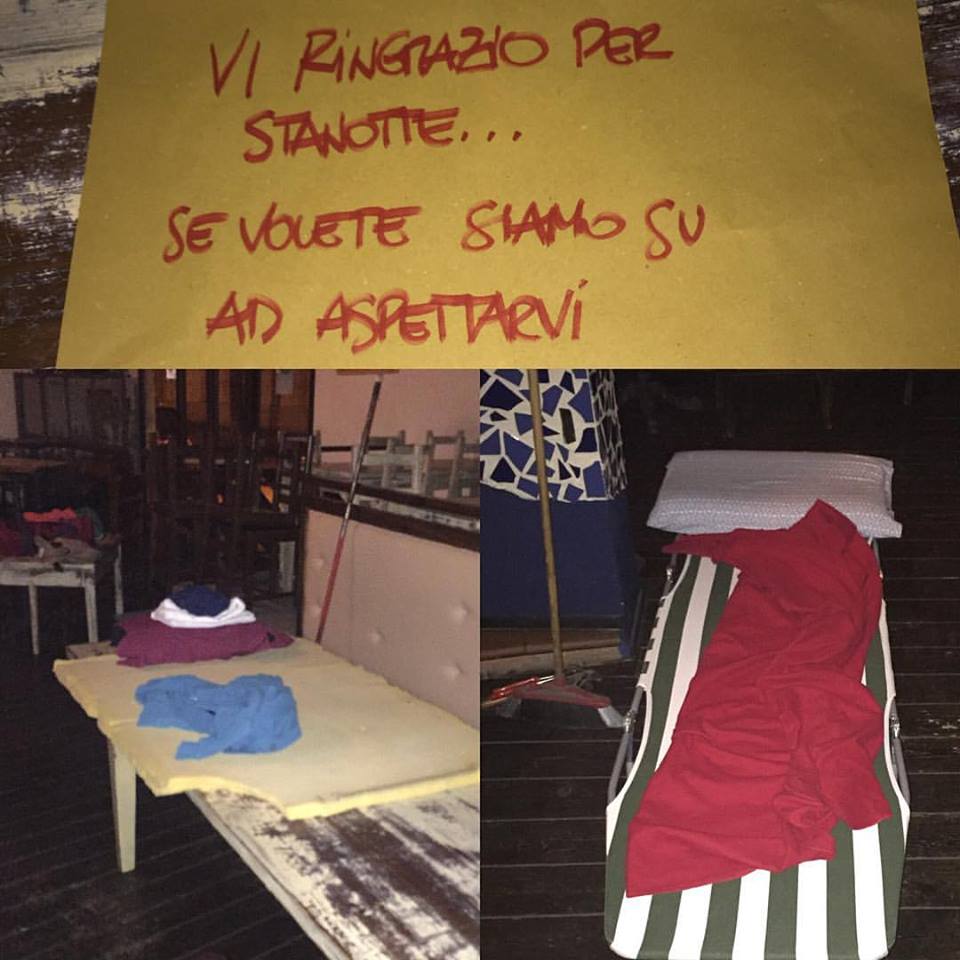 VI RINGRAZIO PER
STANOTTE...
SE VOLETE SIAMO SU
AD ASPETTARVI